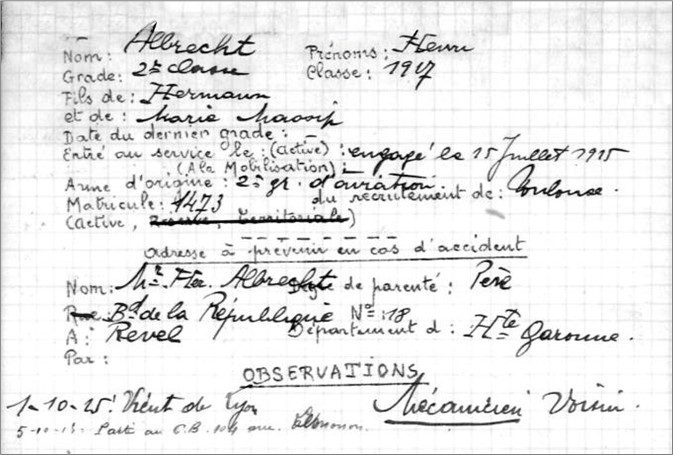 Nom: Albrecht Prénoms: Henri
Grade: 2e classe Classe: 1917
Fils de: Hermann
et de: Marie Massip
Date du dernier grade:
Entré au service le: (Active): engagé le 15 Juillet 1915
(A la Mobilisation):
Arme d'origine: 2e gr. d'aviation
Matricule: 1473 du recrutement de: Toulouse.
(Active, Réserve, Territoriale)
Adresse à prévenir en cas d'accident
Nom: Mr Her. Albrecht Degré de parenté: Père
Rue Bd de la République No: 18
A: Revel Département d: Hte Garonne.
Par:
OBSERVATIONS
1-10-15: Vient de Lyon Mécanicien Voisin.
5-10-15. Parti au C.B. 104